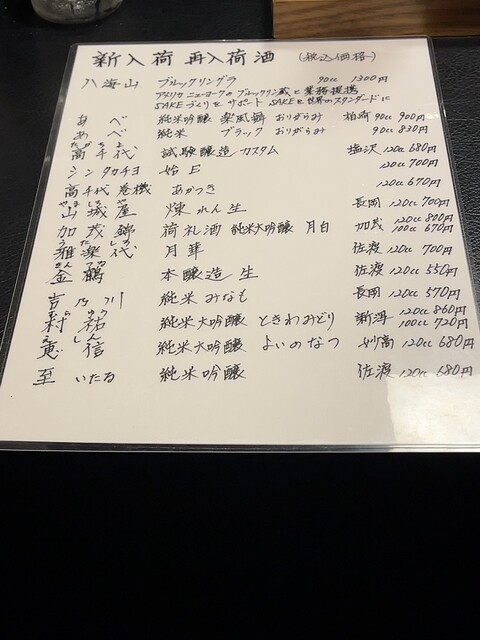 新入荷 再入荷 酒 (税込価格)
八海山 ブルックリングラ 90cc 1300円
アメリカ ニューヨークの ブルックリン蔵と業務提携
SAKEづくりを サポート SAKEを世界のスタンダードに
あべ 純米吟醸 楽風舞 おりがらみ 柏崎 90cc 900円
あべ 純米 ブラック おりがらみ 90cc 830円
たかちよ
高千代 試験醸造カスタム 塩沢 120cc 680円
シン タカチヨ 始 E 120cc 700円
高千代 巻機 あかつき 120cc 670円
やましろや
山城屋 煉れん生 長岡 120cc 700円
加茂錦 荷札酒 純米大吟醸 月白 加茂 120cc 800円
100cc 670円
うたしろ
雅楽代 月華 佐渡 120cc 700円
きんつる
金鶴 本醸造 生 佐渡 120cc 550円
吉乃川 純米 みなも 長岡 120cc 570円
むらゆう
村祐 純米大吟醸 ときわみどり 新潟 120cc 860円
100cc 720円
えしん
恵信 純米大吟醸 よいのなつ 妙高 120cc 680円
至 いたる 純米吟醸 佐渡 120cc 680円